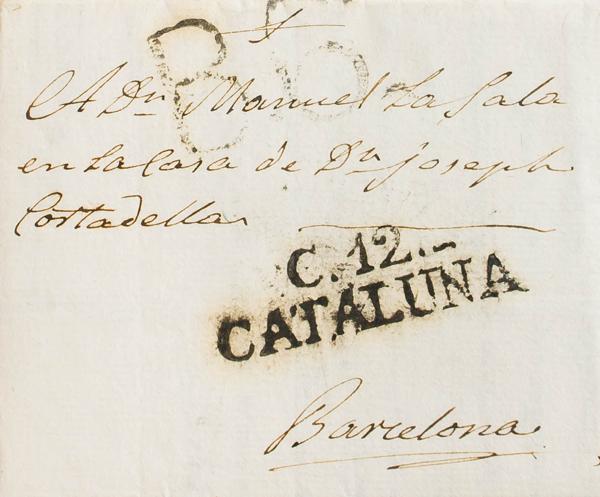 A Dn. Manuel La Sala
en la Casa de Dn. Joseph
Cortadella
C. 12.-
CATALUNA
Barcelona